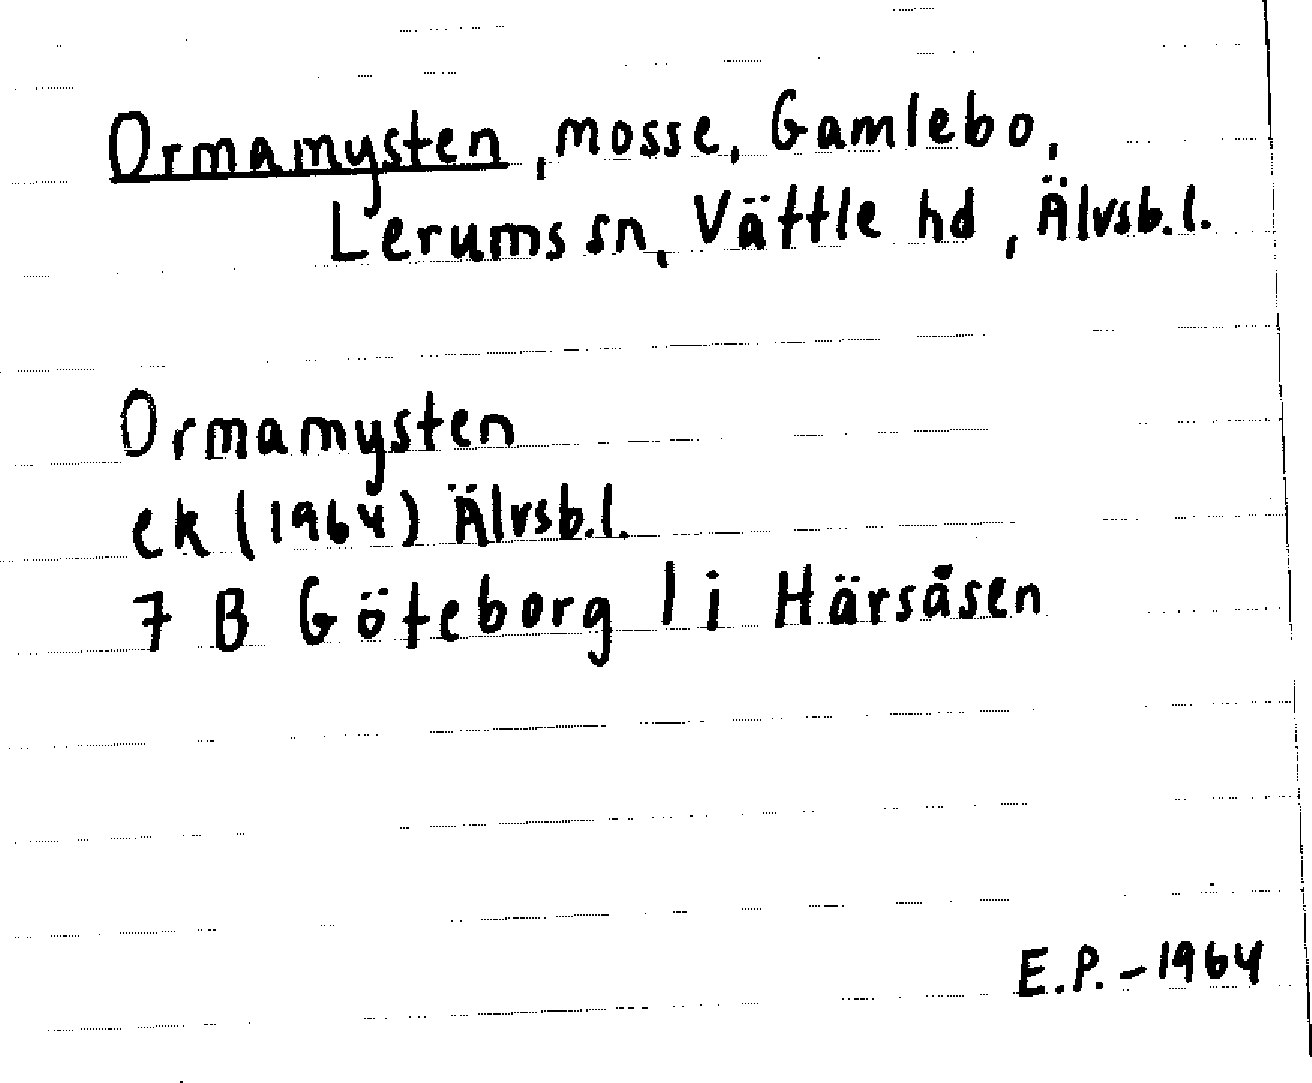 Ormamysten, mosse, Gamlebo,
Lerums sn, Vättle hd, Älvsb.l.
Ormamysten
ek (1964) Älvsb.l.
7 B Göteborg 1 i Härsåsen
E.P. - 1964